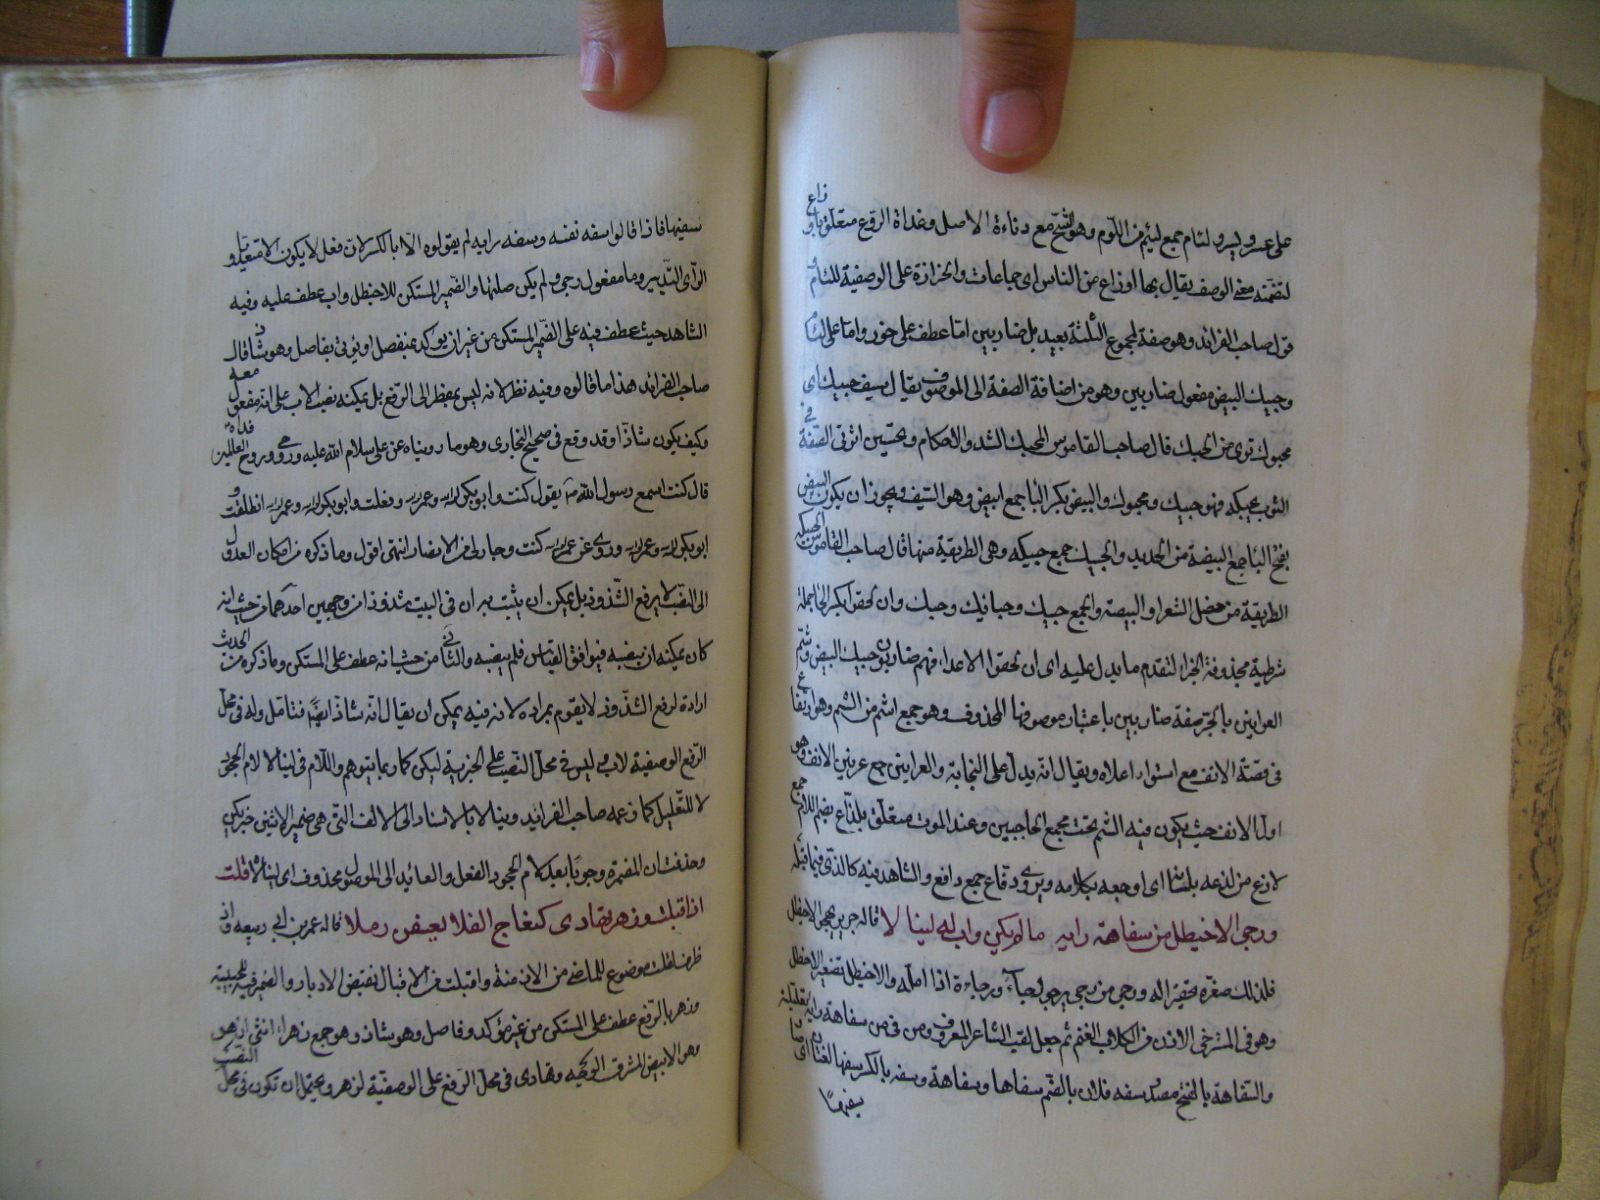 على عسرو ليسرو لئام جمع لئيم من اللؤم وهو الشح مع دناءة الاصل وغداة الروع متعلق باوزاع
لتضمنه معنى الوصف يقال بها اوزاع من الناس اى جماعات والخزازة على الوصفية للئام و
قول صاحب الفرائد وهو صفة لمجموع الثلثة بعيد بل ضاربين اما عطف على خور واما على لئام
وحبيك البيض مفعول ضاربين وهو من اضافة الصفة الى الموصوف يقال سيف حبيك اى
محبوك قوى من الحبك قال صاحب القاموس الحبك الشد والاحكام وتحسين اثر الصنعة فى
الثوب يحبكه فهو حبيك ومحبوك والبيض بكسر الباء جمع ابيض وهو السيف ويجوز ان يكون البيض
بفتح الباء جمع البيضة من الحديد والحبيك جمع حبيكه وهى الطريقة منها قال صاحب القاموس الحبيكه
الطريقة من خصل الشعر او البيضة والجمع حبيك وحبائك وحبك وان لحقوا بكسر الخا جملة
شرطية محذوفة الجزاء لتقدم ما يدل عليه اى ان لحقوا الاعداء فهم ضاربون حبيك البيض وشم
العرانين بالجر صفة ضاربين باعتبار موصوفها المحذوف وهو جمع اشم من الشمم وهو ارتفاع
فى قصبة الانف مع استواء اعلاه ويقال انه يدل على النجابة والعرانين جمع عرنين الانف وهو
اول الانف حيث يكون فيه الشم تحت مجمع الحاجبين وعند الموت متعلق بلذاع بضم اللام جمع
لاذع من لذعه بلسانه اى اوجعه بكلامه ويروى دفاع جمع دافع والشاهد فيه كالذى فيما قبله
ورجى الاخيطل من سفاهة رايه ما لم يكن واب له لينالا قاله جرير يهجى الاخطل
فلذلك صغره تحقيرا له ورجى من رجى يرجو رجاء ورجاءة اذا امله والاخيطل تصغير الاخطل
وهو فى المسترخى الاذن من الكلاب الغنم ثم جعل لقب الشاعر المعروف ومن فى من سفاهة رايه تعليلة
والسفاهة بالفتح مصدر سفه فلان بالضم سفاها وسفاهة وسفه بالكسر سفها لغتان اى صار
سفيها
سفيها فاذا قالوا سفه نفسه وسفه رايه لم يقولوه الا بالكسر لان فعل لا يكون الا متعديا و
الراى التدبير وما مفعول رجى ولم يكن صلتها والضمير المستكن للاخيطل واب عطف عليه وفيه
الشاهد حيث عطف فيه على الضمير المستكن من غير ان يوكد بمنفصل او يؤتى بفاصل وهو شاذ قال
صاحب الفرائد هذا ما قالوه وفيه نظر لانه ليس بمضطر الى الرفع بل يمكنه نصب الاب على انه مفعول معه
وكيف يكون شاذا وقد وقع فى صحيح البخارى وهو ما رويناه عن على سلام الله عليه وروحى وروح العالمين فداه
قال كنت اسمع رسول الله ص يقول كنت وابو بكر وعمر وفعلت وابو بكر وعمر وانطلقت و
ابو بكر وعمر وروى عن عمر كنت وجار لى من الانصار انتهى اقول وما ذكره من امكان العدول
الى النصب لا يرفع الشذوذ بل يمكن ان يثبت به ان فى البيت شذوذا من وجهين احدهما من حيث انه
كان يمكنه ان ينصبه فيوافق القياس فلم ينصبه والثانى من حيث انه عطف على المستكن وما ذكره من الحديث
ارادة لرفع الشذوذ لا يقوم بمراده لانه فيه يمكن ان يقال انه شاذ ايضا فتامل وله فى محل
الرفع الوصفية لاب وليس فى محل النصب على الخبرية ليكن كما ربما يتوهم واللام فى لينالا لام الجحود
لا للتعليل كما زعمه صاحب الفرائد وينالا بالاسناد الى الالف التى هى ضمير الاثنين خبر يكن
وحذفت ان المضمرة وجوبا بعد لام الجحود الفعل والعائد الى الموصول محذوف اى لينالاه قلت
اذ اقبلت وزهر تهادى كنعاج الفلا تعسفن رملا قاله عمر بن ابى ربيعه واذ
ظرف لقلت موضوع للماضى من الازمنة واقبلت من الاقبال نقيض الادبار والضمير فيه للحبيبة
وزهر بالرفع عطف على المستكن من غير مؤكد وفاصل وهو شاذ وهو جمع زهراء انثى ازهر
وهو الابيض المشرق الوجه وتهادى فى محل الرفع على الوصفية لزهر ويحتمل ان تكون فى محل النصب